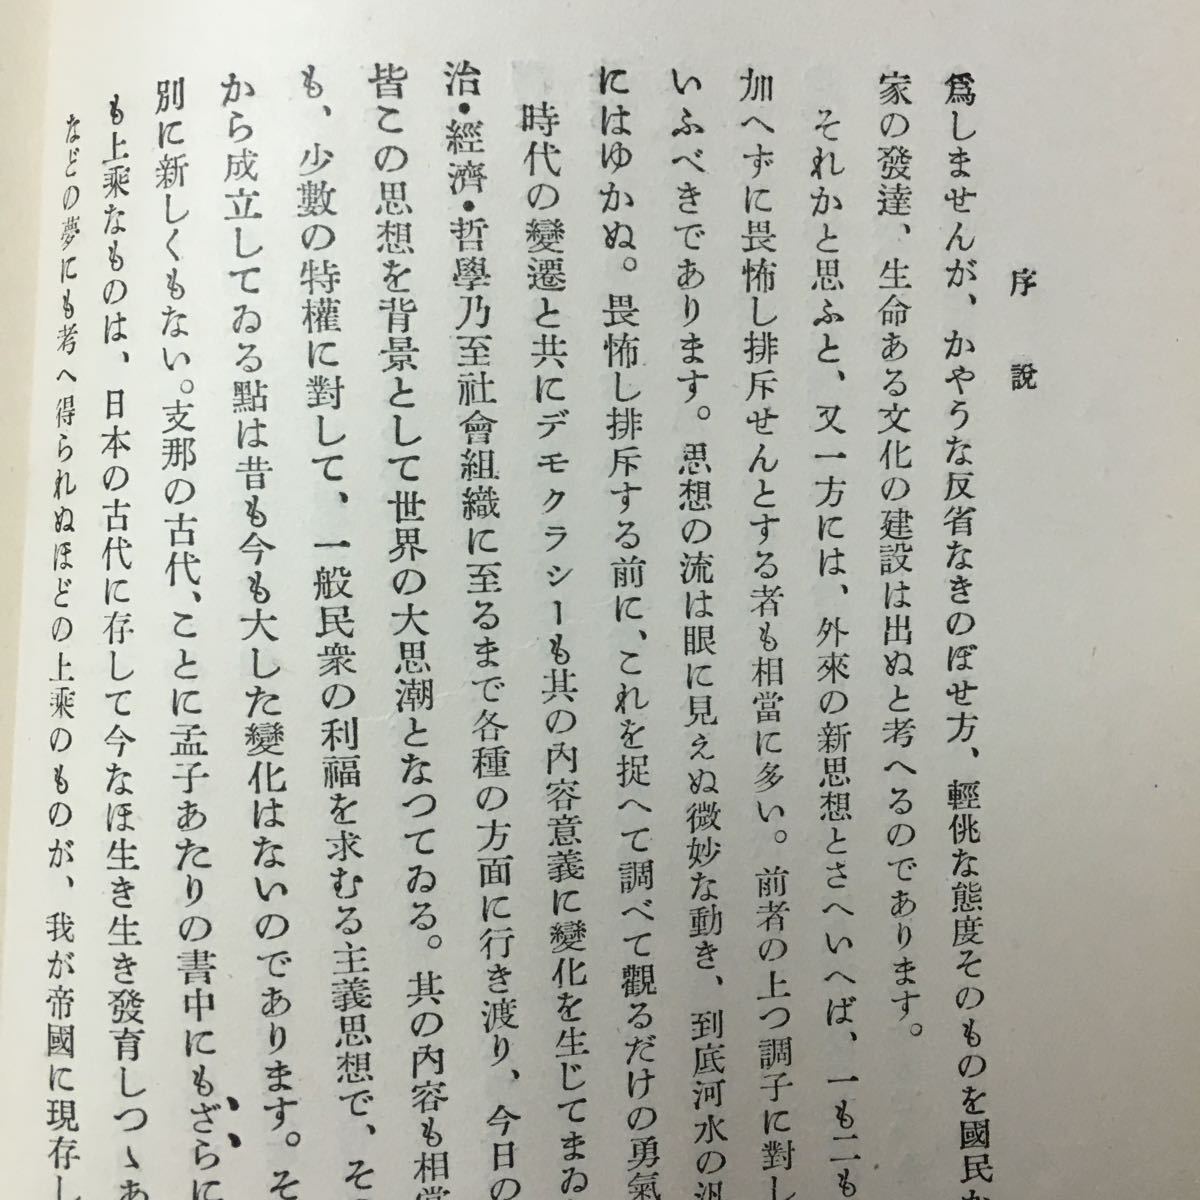 序說
爲しませんが、かやうな反省なきのぼせ方、輕佻な態度そのものを國民
家の發達、生命ある文化の建設は出ぬと考へるのであります。
それかと思ふと、又一方には、外來の新思想とさへいへば、一も二も
加へずに畏怖し排斥せんとする者も相當に多い。前者の上つ調子に對し
いふべきであります。思想の流は眼に見えぬ微妙な動き、到底河水の氾
にはゆかぬ。畏怖し排斥する前に、これを捉へて調べて觀るだけの勇氣
時代の變遷と共にデモクラシーも其の內容意義に變化を生じてまゐ
治・經濟・哲學乃至社會組織に至るまで各種の方面に行き渡り、今日の
皆この思想を背景として世界の大思潮となつてゐる。其の內容も相當
も、少數の特權に對して、一般民衆の利福を求むる主義思想で、その
から成立してゐる點は昔も今も大した變化はないのであります。そ
別に新しくもない。支那の古代、ことに孟子あたりの書中にもざらに
も上乘なものは、日本の古代に存して今なほ生き生き發育しつゝあ
などの夢にも考へ得られぬほどの上乘のものが、我が帝國に現存し